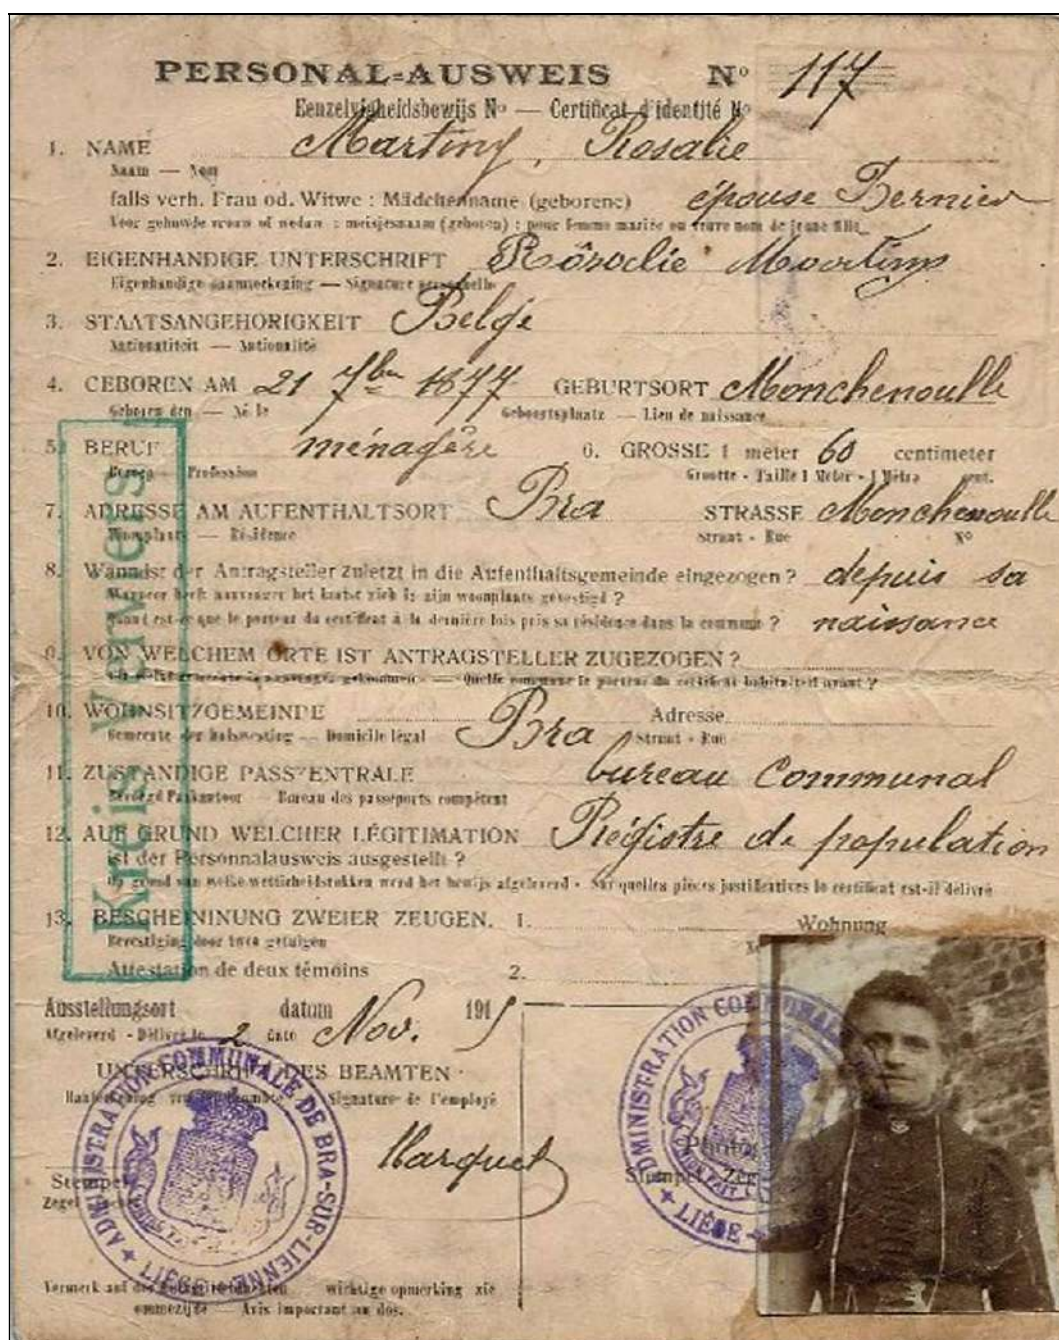 PERSONAL-AUSWEIS Nº 117
Eenzelvigheidsbewijs Nº — Certificat d'identité Nº
1. NAME Martiny, Rosalie
Naam — Nom
falls verh. Frau od. Witwe : Mädchenname (geborene) épouse Bernier
Voor gehuwde vrouw of weduw : meisjesnaam (geboren) : pour femme mariée ou veuve nom de jeune fille
2. EIGENHANDIGE UNTERSCHRIFT Rôsalie Martiny
Eigenhandige — Signature personnelle
3. STAATSANGEHORIGKEIT Belge
Nationatiteit — Nationalité
4. CEBOREN AM 21 7bre 1877 GEBURTSORT Monchenoulle
Geboren den — Né le Geboortsplaatz — Lieu de naissance
5. BERUF ménagère 6. GROSSE 1 meter 60 centimeter
Beroep — Profession Grootte - Taille 1 Meter - 1 Mètre cent.
7. ADRESSE AM AUFENTHALTSORT Bra STRASSE Monchenoulle
Woonplaats — Résidence Straat - Rue Nº
8. Wann ist der Antragsteller zuletzt in die Aufenthaftsgemeinde eingezogen ? depuis sa
Wanneer heeft aanvrager het laatst zich in zijn woonplaats gevestigd ?
Quand est-ce que le porteur du certificat a la dernière fois pris sa résidence dans la commune ? naissance
9. VON WELCHEM ORTE IST ANTRAGSTELLER ZUGEZOGEN ?
— Quelle commune le porteur du certificat avant ?
10. WOHNSITZGEMEINDE Bra Adresse
Gemeente der — Domicile légal Straat - Rue
11. ZUSTANDIGE PASSZENTRALE bureau Communal
Bevoegd Paskantoor — Bureau des passeports compétent
12. AUF GRUND WELCHER LÉGITIMATION Régistre de population
ist der Personnalausweis ausgestellt ?
Op grond van welke werd het bewijs afgeleverd - Sur quelles pièces justificatives le certificat est-il délivré
13. BESCHEININUNG ZWEIER ZEUGEN. 1. Wohnung
Bevestiging door twee getuigen
Attestation de deux témoins 2.
Kreis Verviers
Ausstellungsort datum 1915
Afgeleverd - Délivré le 2 date Nov.
UNTERSCHRIFT DES BEAMTEN
Signature de l'employé
Marquet
Stempel
Zegel
ADMINISTRATION COMMUNALE DE BRA-SUR-LIENNE
LIÉGE
ADMINISTRATION COMMUNALE
LIÉGE
Stempel Zegel
Vermerk auf der wichtige opmerking zie
ommezijde — Avis important au dos.